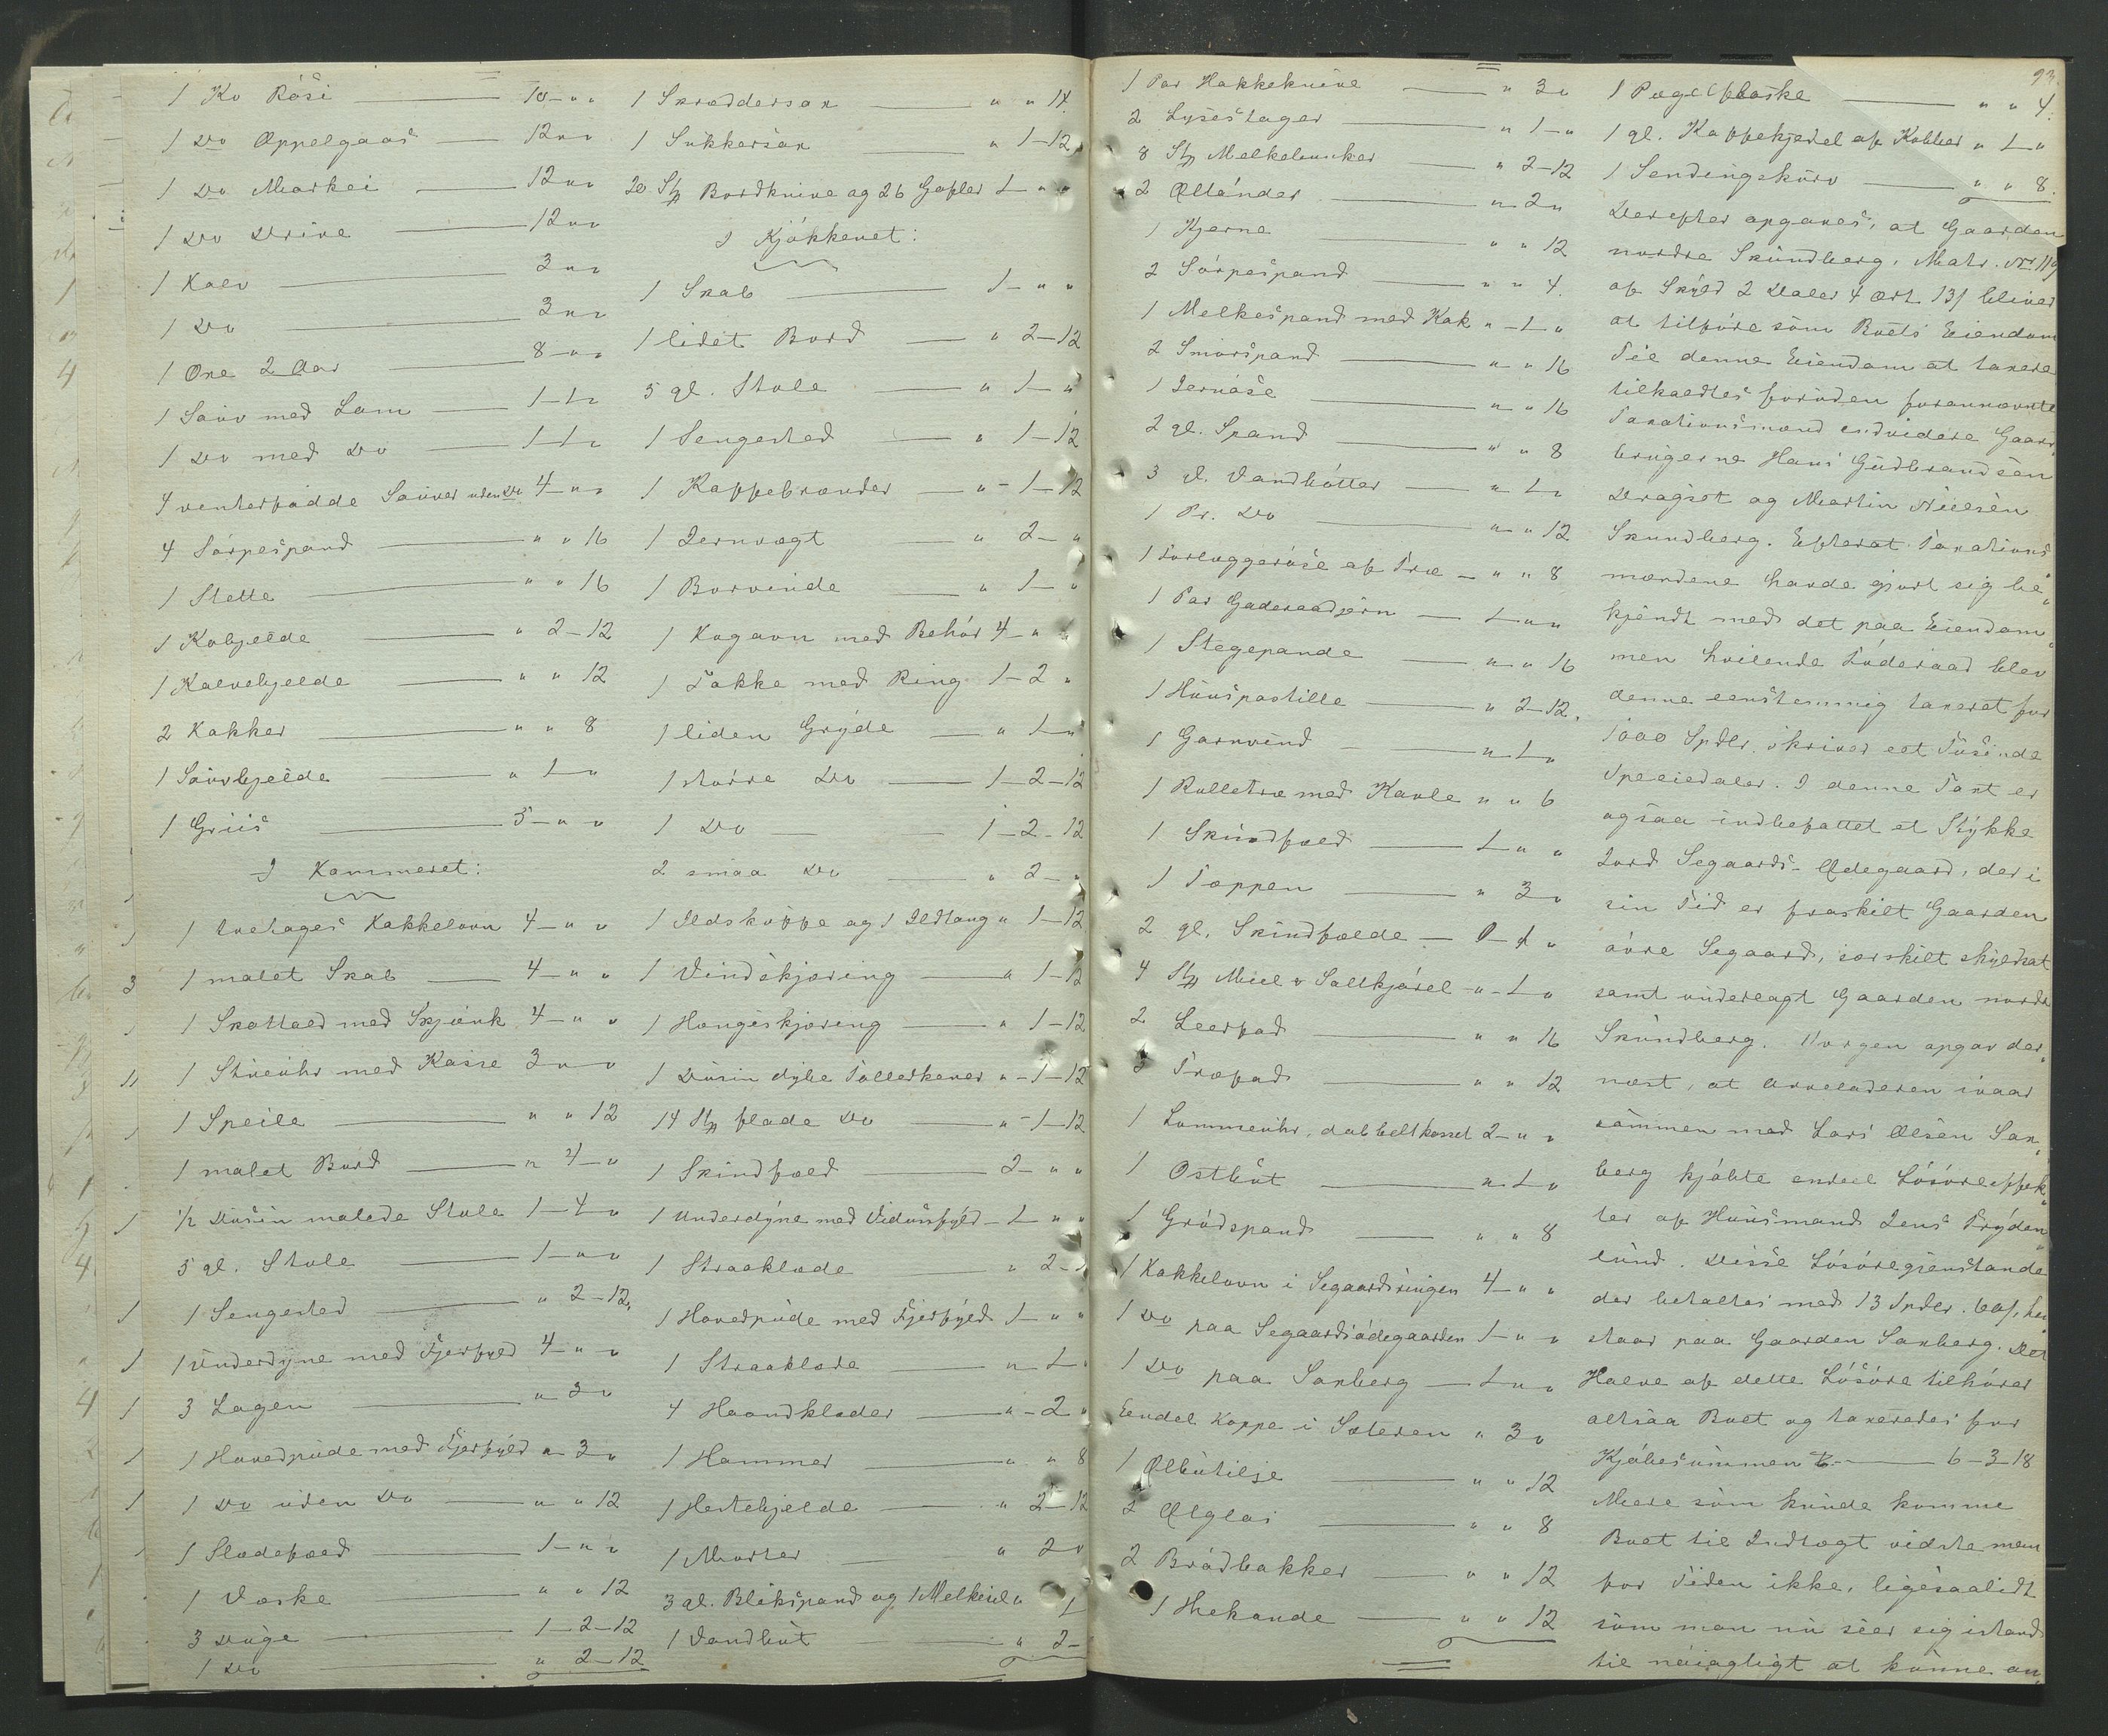 1 Ko Rósi — 10 - " "
1 Do Appelgaas — 12 " "
1 Do Morkei — 12 " "
1 Do Drive — 12 " "
1 Kalv — 3 " "
1 Do — 3 " "
1 Oxe 2 Aar — 8 - " "
1 Sauv med Lam — 1 - 1 "
1 Do med Do — 1 - 1 "
4 venterfödde Sauver uden Do 4 - " "
4 Sörpespand — " " 16
1 Stette — " " 16
1 Kobjelde — " 2 - 12
1 Kalvebjelde — " " 12
2 Kakker — " " 8
1 Sauvbjelde — " 1 "
1 Griis — 5 - " "
I Kammeret:
1 tveetages Kakkelovn 4 - " "
1 malet Skab — 4 - " "
1 Skattoll med Skjænk 4 - " "
1 Stueuhr med Kasse 3 " "
1 Speile — " " 12
1 malet Bord — " 4 - "
1/2 Dusin malede Stole 1 - 4 "
5 gl. Stole — 1 - " "
1 Sengested — " 2 - 12
1 Underdyne med Fjerfyld 4 - " "
3 Lagen — " 3 "
1 Hovedpude med Fjerfyld " 3 "
1 Do uden Do — " " 12
1 Sladefæld — 1 - " "
1 Væske — " " 12
3 Duge — 1 - 2 - 12
1 Do — " 2 - 12
1 Skræddersax — " " 14
1 Sukkersax — " 1 - 12
20 Stk Bordknive og 26 Gafler 1 - " "
I Kjökkenet:
1 Skab — 1 - " "
1 lidet Bord — " 2 - 12
5 gl. Stole — " 1 - "
1 Sengested — " 1 - 12
1 Kaffebrænder — " - 1 - 12
1 Jernvægt — " 2 - "
1 Borvinde — " 1 - "
1 Kogovn med Behör 4 - " "
1 Takke med Ring 1 - 2 "
1 liden Gryde — " 1 - "
1 större Do — 1 - 2 - 12
1 Do — 1 - 2 - 12
2 smaa Do — " 2 - "
1 Ildskuffe og 1 Ildtang " 1 - 12
1 Vindskjæring — " 1 - 12
1 Hongeskjæring — " 1 - 12
1 Dusin dybe Tallerkener " - 1 - 12
14 Stk flade Do — " - 1 - 12
1 Skindfæld — 2 - " "
1 Underdyne med Vidunsfyld - 1 - " "
1 Straaklæde — " 2 -
1 Hovedpude med Fjerfyld 1 - " "
1 Straaklæde — " 1 -
4 Haandklæder — " - 2 "
1 Hammer — " " 8
1 Hestebjelde — " 2 - 12
1 Morter — " 2 "
3 gl. Blikspand og 1 Melkesil " 1
1 Vandböt — " 2 -
1 Par Hakkeknive — " 3 "
2 Lysestager — " 1 - "
8 Stk Melkebunker — " 2 - 12
2 Ölløander — " 2 "
1 Kjerne — " " 12
2 Sörpespand — " " 4
1 Melkespand med Kak " - 1 "
2 Smörspand — " " 16
1 Jernöse — " " 16
2 gl. Spand — " " 8
3 gl. Vandbötter — " 1 "
1 Pr. Do — " " 12
1 Torloggeröse af Træ — " " 8
1 Par Goderaadjern — 1 - " "
1 Stegepande — " " 16
1 Huuspostille — " 2 - 12
1 Garnvind — " 1 "
1 Rulletræ med Kavle " " 6
1 Skindfæld — 1 - " "
1 Tæppen — " 3 "
2 gl. Skindfælde —
4 Stk Meel & Saltkjörel " - 1 "
2 Leerfad — " " 16
3 Træfad — " " 12
1 Lommeuhr, dobbeltkasset 2 - " "
1 Ostböt — " 1 "
1 Grödspand — " " 8
1 Kakkelovn i Segaardsringen 4 - " "
1 Do paa Segaardsödegaarden 1 - " "
1 Do paa Saxberg — 1 " "
Eendel Koppe i Sæteren " 3 "
1 Ölbutilje — " " 12
2 Ölglas — " " 8
2 Brödbakker — " " 12
1 Thekande — " " 12
93.
1 Pægelflaske — " " 4
1 gl. Kaffekjedel af Kobber " 1 "
1 Sendingskurv — " " 8
Derefter opgaves, at Gaarden
nordre Skundberg, Matr. Nr 119
af Skyld 2 Daler 4 Ort 13 s bliver
at tilföre som Boets Eiendom
Til denne Eiendom at taxere
tilkaldtes foruden forannævnte
Taxationsmænd endvidere Gaard„
brugerne Hans Gudbrandsen
Dragset og Martin Nielsen
Skundberg. Efterat Taxations
mændene havde gjort sig be„
kjendt med det paa Eiendom„
men hvilende Föderaad blev
denne eenstemmig taxeret for
1000 Spdlr. skriver eet Tusinde
Speciedaler. I denne Taxt er
ogsaa indbefattet et Stykke
Jord Segaards-Ødegaard, der i
sin Tid er fraskilt Gaarden
övre Segaard, særskilt skyldsat
samt underlagt Gaarden nordr
Skundberg. Værgen opgav der„
næst, at Arveladeren ivaar
sammen med Lars Olsen Sax„
berg kjöbte endeel Lösöreeffek„
ter af Huusmand Jens Fryden„
lund. Disse Lösöregjenstande
der betaltes med 13 Spdlr. , be„
staar paa Gaarden Saxberg. Det
Halve af dette Lösöre tilhörer
altsaa Boet og taxeredes for
Kjöbesummen — 6 - 3 - 18
Mere som kunde komme
Boet til Indtægt vidste man
for Tiden ikke, ligesaalidt
som man nu seer sig istand
til nöiagtigt at kunne an„